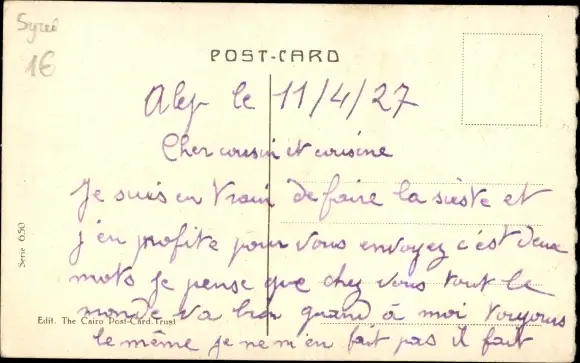 Syrie
1€
POST-CARD
Alep le 11/4/27
Cher cousin et cousine
Je suis en train de faire la sieste et
j'en profite pour vous envoyez c'est deux
mots je pense que chez vous tout le
monde va bien quand à moi toujours
le même je ne m'en fait pas il fait
Edit. The Cairo Post-Card Trust
Serie 650